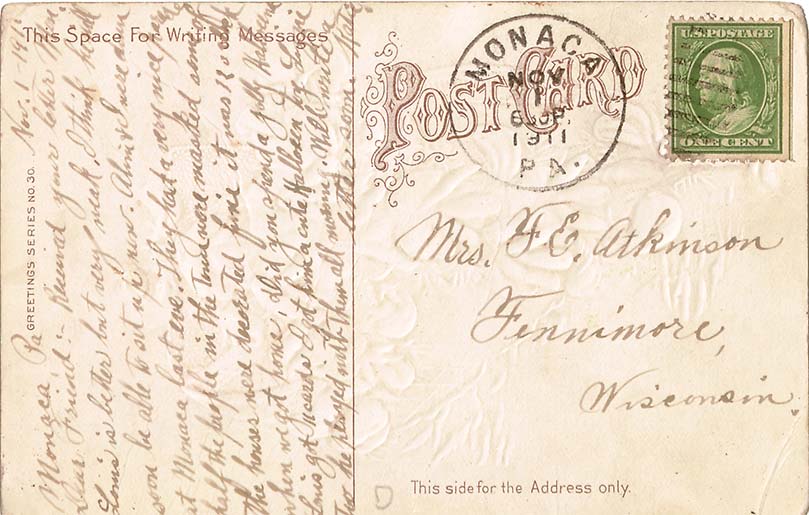 This Space For Writing Messages
GREETINGS SERIES NO. 30.
Monaca, Pa Nov. 1 - 19
Dear Friend :- Received your letter
Louis is better but very weak. I think he'll
soon be able to sit up now. Almira
at Monaca last eve. They had a very nice
half the people in the town were masked
the houses were decorated fine it was 12 o'clock
when we got home. Did you spend a jolly
Louis got 4 cards & got him a cute
he played with them all morning. Will write
letter soon.
POST CARD
MONACA
NOV
1
6 30 P.
1911
PA.
U.S. POSTAGE
ONE CENT
Mrs. F. E. Atkinson
Fennimore,
Wisconsin.
This side for the Address only.